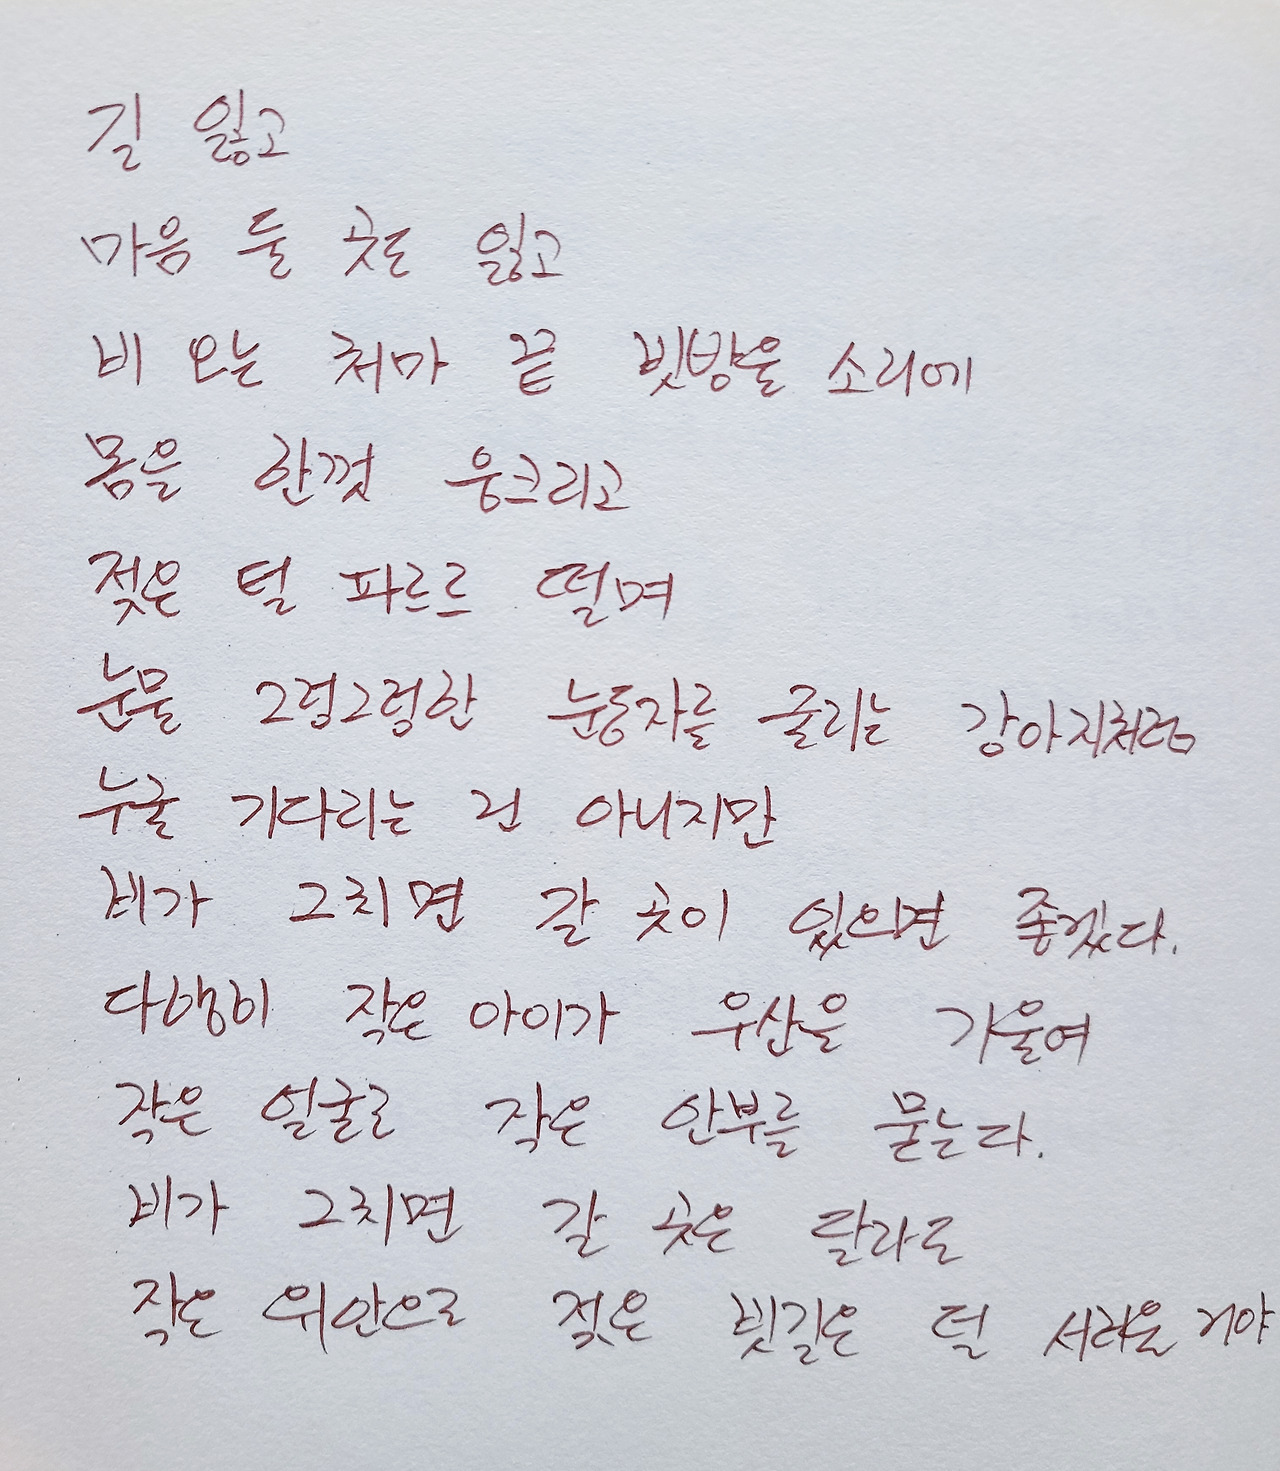 길 잃고
마음 둘 곳도 잃고
비 오는 처마 끝 빗방울 소리에
몸을 한껏 웅크리고
젖은 털 파르르 떨며
눈물 그렁그렁한 눈동자를 굴리는 강아지처럼
누굴 기다리는 건 아니지만
비가 그치면 갈 곳이 있으면 좋겠다.
다행히 작은 아이가 우산을 기울여
작은 얼굴로 작은 안부를 묻는다.
비가 그치면 갈 곳은 달라도
작은 위안으로 젖은 빗길은 덜 서러울 거야